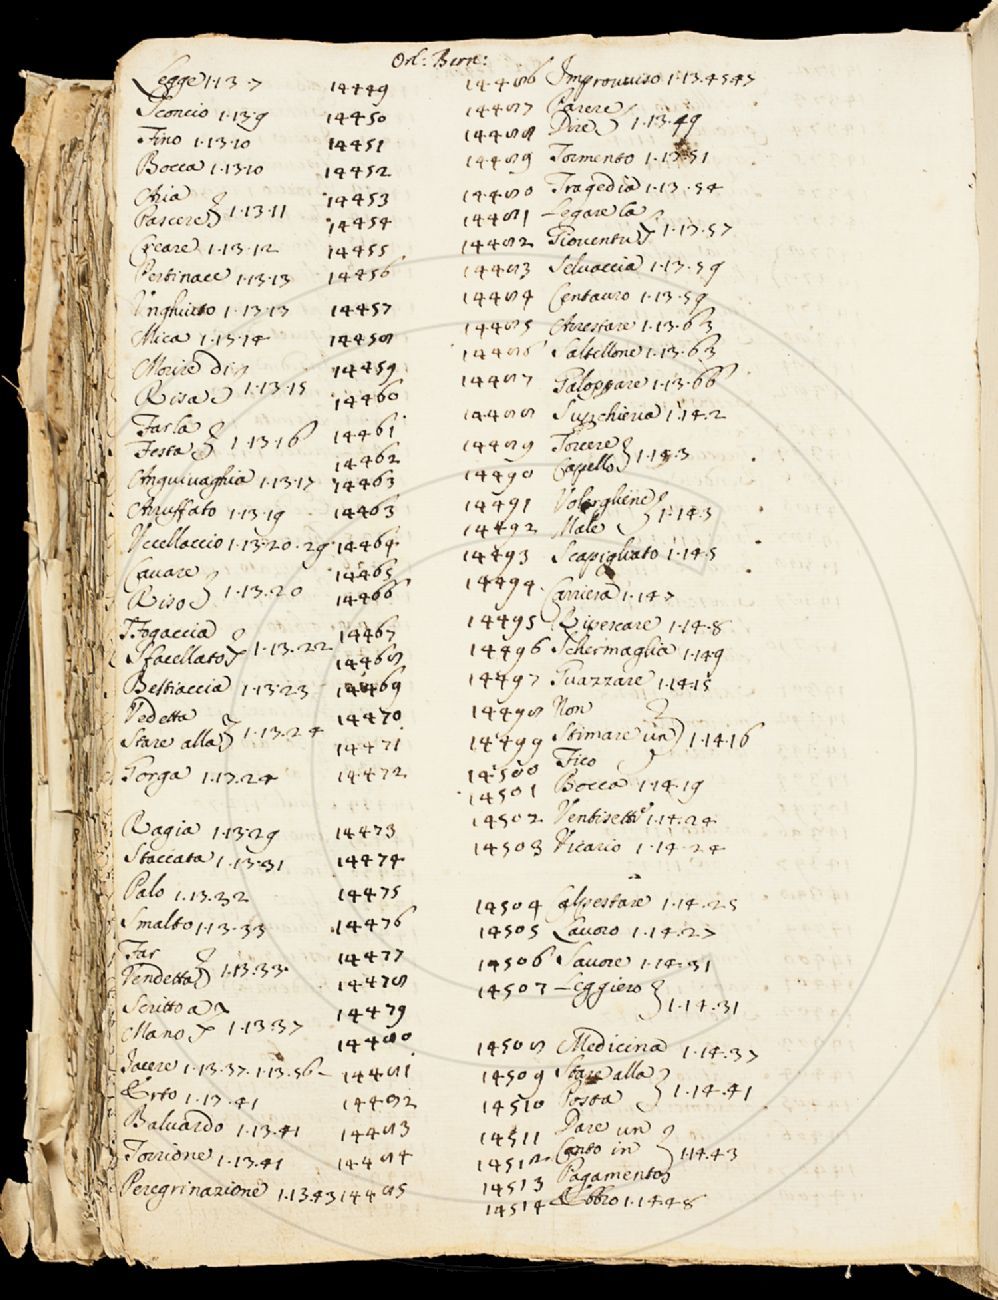 Orl: Bern:
Legge 1·13·7 14449
Sconcio 1·13·9 14450
Fino 1·13·10 14451
Bocca 1·13·10 14452
Aria 14453
Pascere 1·13·11 14454
Creare 1·13·12 14455
Pertinace 1·13·13 14456
Inghiotto 1·13·13 14457
Mica 1·13·14 14458
Morire di 14459
Risa 1·13·15 14460
Far la 14461
Festa 1·13·16 14462
Anguinaghia 1·13·17 14463
Arruffato 1·13·19 14463
Uccellaccio 1·13·20·29 14464
Cavare 14465
Riso 1·13·20 14466
Fogaccia 14467
Sfacellato 1·13·22 14468
Bestiaccia 1·13·23 14469
Vedetta 14470
Stare alla 1·13·24 14471
Gorga 1·13·24 14472
Ragia 1·13·29 14473
Staccata 1·13·31 14474
Palo 1·13·32 14475
Smalto 1·13·33 14476
Far 14477
Vendetta 1·13·33· 14478
Scritto a 14479
Mano 1·13·37 14480
Jacere 1·13·37·1·13·56 14481
Erto 1·13·41 14482
Baluardo 1·13·41 14483
Torrione 1·13·41 14484
Peregrinazione 1·13·43 14485
14486 Improuuiso 1·13·45 47
14487 Parere
14488 Dire 1·13·49
14489 Tormento 1·13·51
14480 Tragedia 1·13·54
14481 Legare la
14482 Giouentu 1·13·57
14483 Seluaccia 1·13·59
14484 Centauro 1·13·59
14485 Arrestare 1·13·63
14486 Saltellone 1·13·63
14487 Galoppare 1·13·66
14488 Supchieria 1·14·2
14489 Torcere
14490 Capello 1·14·3
14491 Volergliene
14492 Male 1·14·3
14493 Scapigliato 1·14·5
14494 Carriera 1·14·7
14495 Ripescare 1·14·8
14496 Schermaglia 1·14·9
14497 Guazzare 1·14·15
14498 Non
14499 Stimare un 1·14·16
14500 Fico
14501 Bocca 1·14·19
14502 Ventisette 1·14·24
14503 Vicario 1·14·24
14504 Calpestare 1·14·25
14505 Lauoro 1·14·27
14506 Sauore 1·14·31
14507 Leggiero 1·14·31
14508 Medicina 1·14·37
14509 Stare alla
14510 Posta 1·14·41
14511 Dare un
14512 Canto in 1·14·43
14513 Pagamento
14514 Ebbro 1·14·48